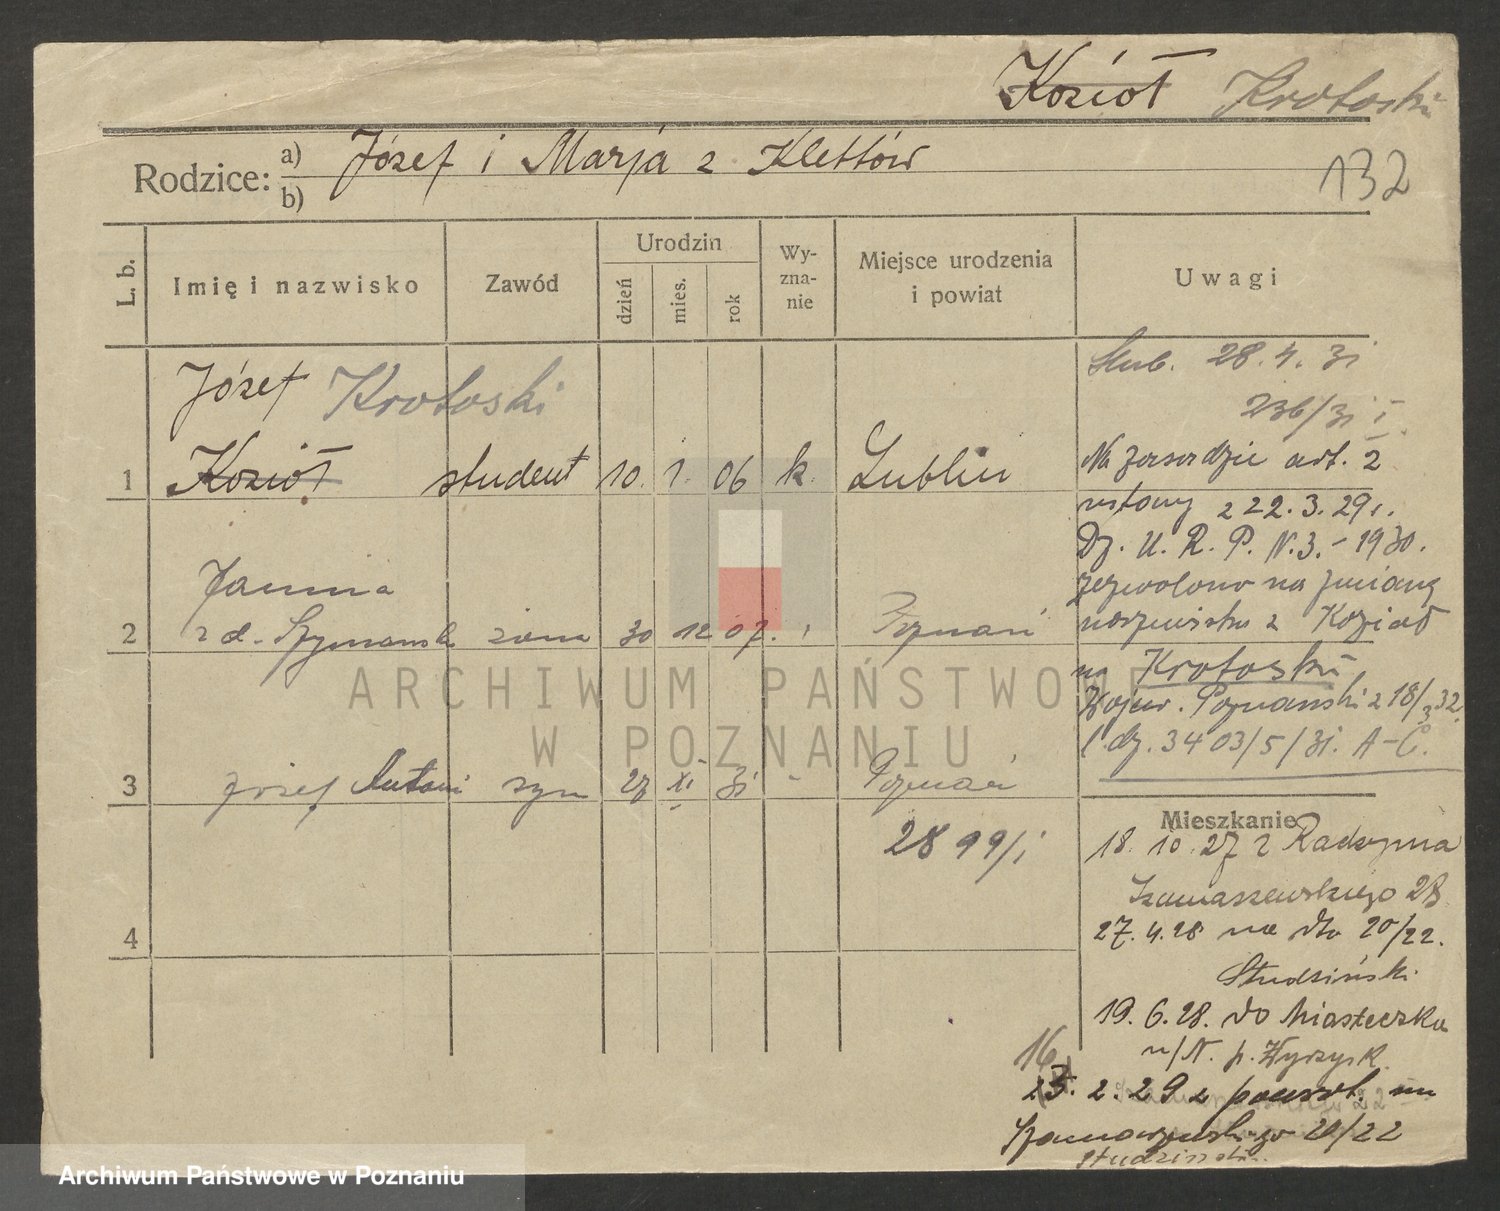 Kozioł Krotoski
132
Rodzice: a) Józef i Marja z Klettów
b)
L. b.
Imię i nazwisko
Zawód
Urodzin
dzień
mies.
rok
Wy-
zna-
nie
Miejsce urodzenia
i powiat
Uwagi
Józef Krotoski
1 Kozioł student 10. 1. 06 k. Lublin
Janina
2 z d. Szymańsk żona 30 12 07. Poznań
3 Józef Antoni syn 27 XI 31 Poznań
2899/i
4
Ślub. 28.4.31
236/31 I.
Na zasadzie art. 2
ustawy z 22.3.29 r.
Dz. U. R. P. N.3.-1930.
zezwolono na zmianę
nazwiska z Kozioł
na Krotoski
Wojew. Poznański z 18/3 32.
l. dz. 3403/5/31. A-C.
Mieszkanie
18. 10. 27 z Radzyma
Szamarzewskiego 28
27.4.28 na dto 20/22.
Studziński.
19.6.28. do Miasteczka
n/N. p. Wyrzysk.
16
2.29 z powrot. na
Szamarzewskiego 20/22
Studziński.
ARCHIWUM PAŃSTWOWE
W POZNANIU
Archiwum Państwowe w Poznaniu